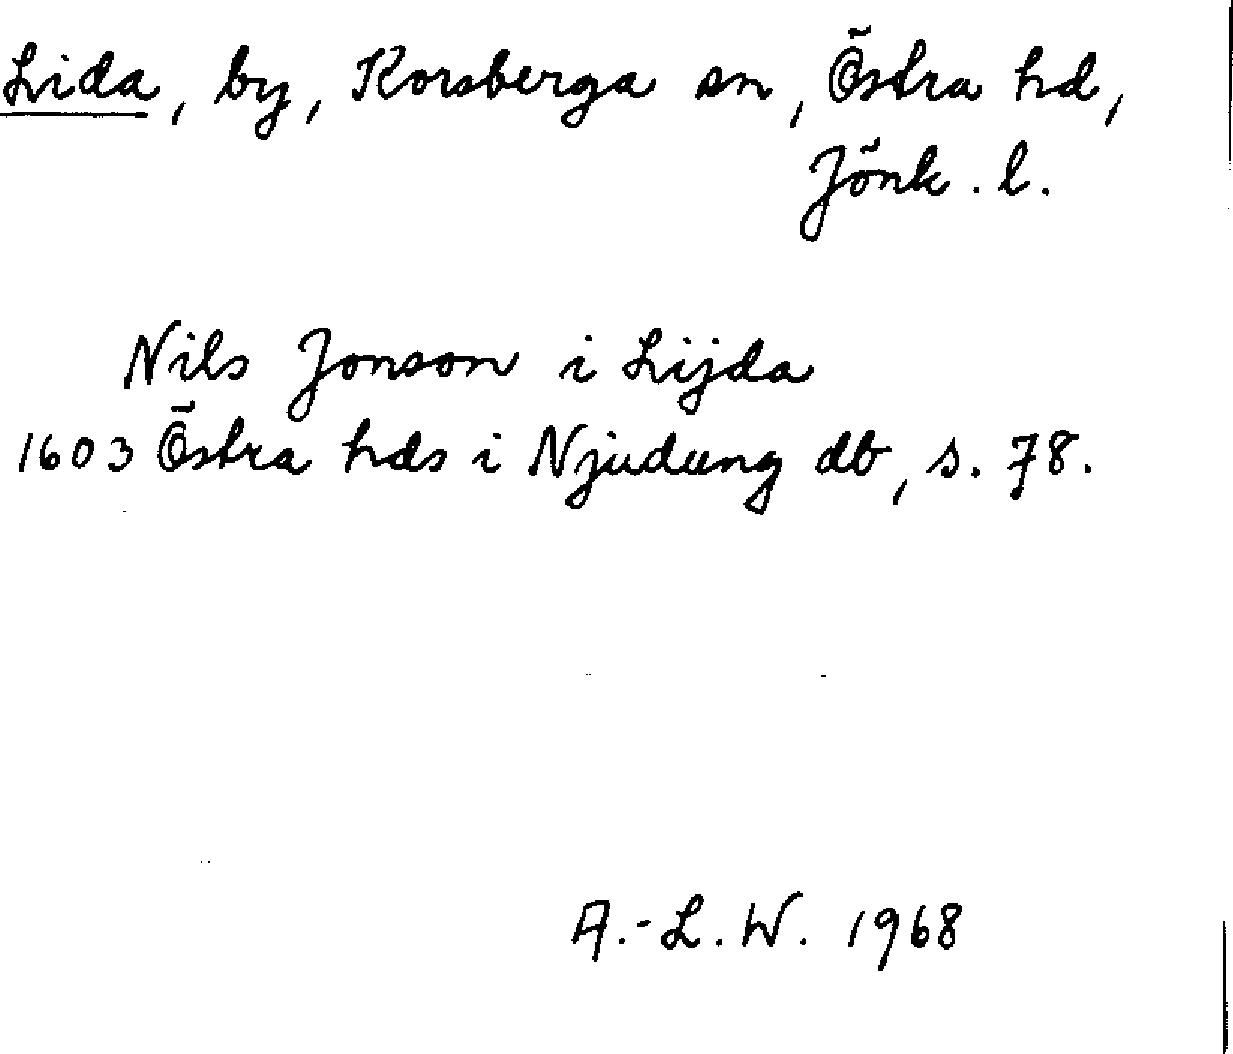 Lida, by, Korsberga sn, Östra hd,
Jönk. l.
Nils Jonson i Lijda
1603 Östra hds i Njudung db, s. 78.
A.-L. W. 1968